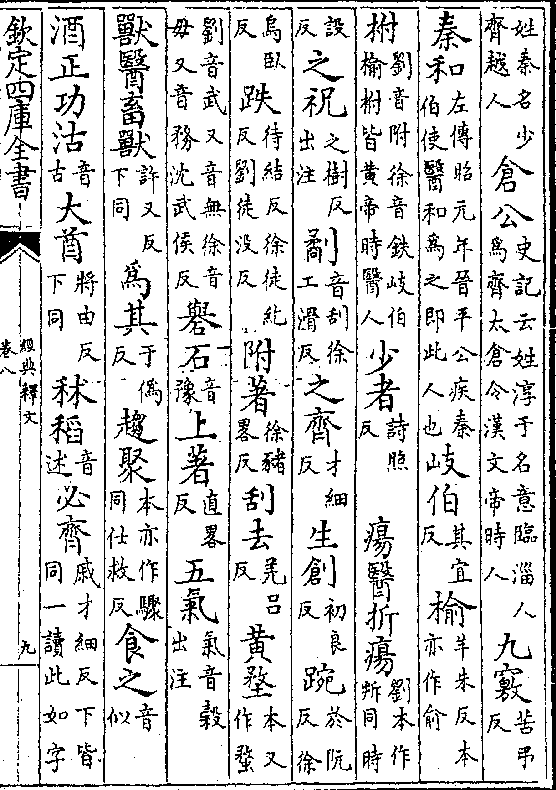 姓秦名少齊越人倉公史記云姓淳于名意臨淄人為齊太倉令漢文帝時人九竅苦弔反
秦和左傳昭元年晉平公疾秦伯使醫和為之即此人也岐伯其宜反榆羊朱反本亦作俞
柎劉音附徐音鈇岐伯榆柎皆黃帝時醫人少者詩照反瘍醫折瘍劉本作斨同時
設反之祝之樹反出注劀音刮徐工滑反之齊才細反生創初良反踠於阮反徐
烏臥反跌待結反徐徒紇反劉徒沒反附著徐豬畧反刮去羌呂反黃堥本又作蝥
劉音武又音無徐音毋又音務沈武侯反礜石音豫上著直畧反五氣氣音穀出注
獸醫畜獸許又反下同為其于偽反趨聚本亦作驟同仕救反食之音似
酒正功沽音古大酋將由反下同秫稻音述必齊戚才細反下皆同一讀此如字
欽定四庫全書
經典釋文
卷八
九